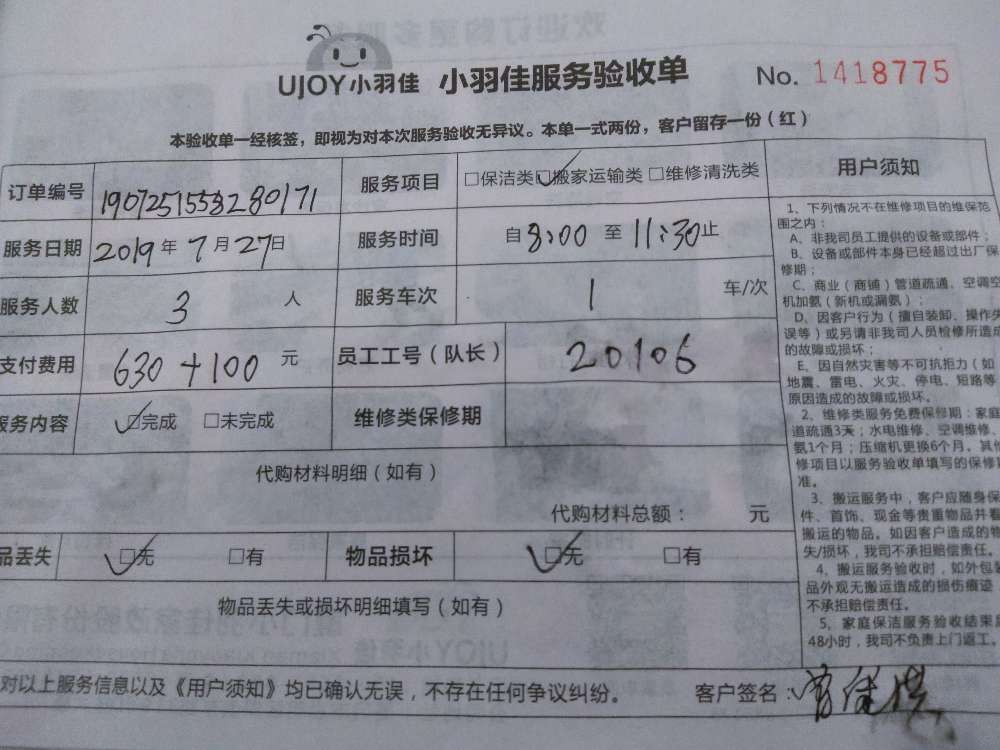 UJOY小羽佳 小羽佳服务验收单 No. 1418775
本验收单一经核签，即视为对本次服务验收无异议。本单一式两份，客户留存一份（红）
订单编号 190725155328017​1 服务项目 □保洁类 ☑搬家运输类 □维修清洗类
服务日期 2019年7月27日 服务时间 自8:00至11:30止
服务人数 3 人 服务车次 1 车/次
支付费用 630+100 元 员工工号（队长） 20106
服务内容 ☑完成 □未完成 维修类保修期
代购材料明细（如有）
代购材料总额： 元
品丢失 ☑无 □有 物品损坏 ☑无 □有
物品丢失或损坏明细填写（如有）
对以上服务信息以及《用户须知》均已确认无误，不存在任何争议纠纷。 客户签名：
用户须知
1、下列情况不在维修项目的维保范
围之内：
A、非我司员工提供的设备或部件；
B、设备或部件本身已经超过出厂保
修期；
C、商业（商铺）管道疏通、空调空
机加氨（新机或漏氨）；
D、因客户行为（擅自装卸、操作失
误等）或另请非我司人员检修所造成
的故障或损坏；
E、因自然灾害等不可抗拒力（如
地震、雷电、火灾、停电、短路等
原因造成的故障或损坏。
2、维修类服务免费保修期：家庭
道疏通3天；水电维修、空调维修、
氨1个月；压缩机更换6个月。其他
修项目以服务验收单填写的保修
准。
3、搬运服务中，客户应随身保
件、首饰、现金等贵重物品并看
搬运的物品。如因客户造成的物
失/损坏，我司不承担赔偿责任。
4、搬运服务验收时，如外包装
品外观无搬运造成的损伤痕迹
不承担赔偿责任。
5、家庭保洁服务验收结束后
48小时，我司不负责上门返工。